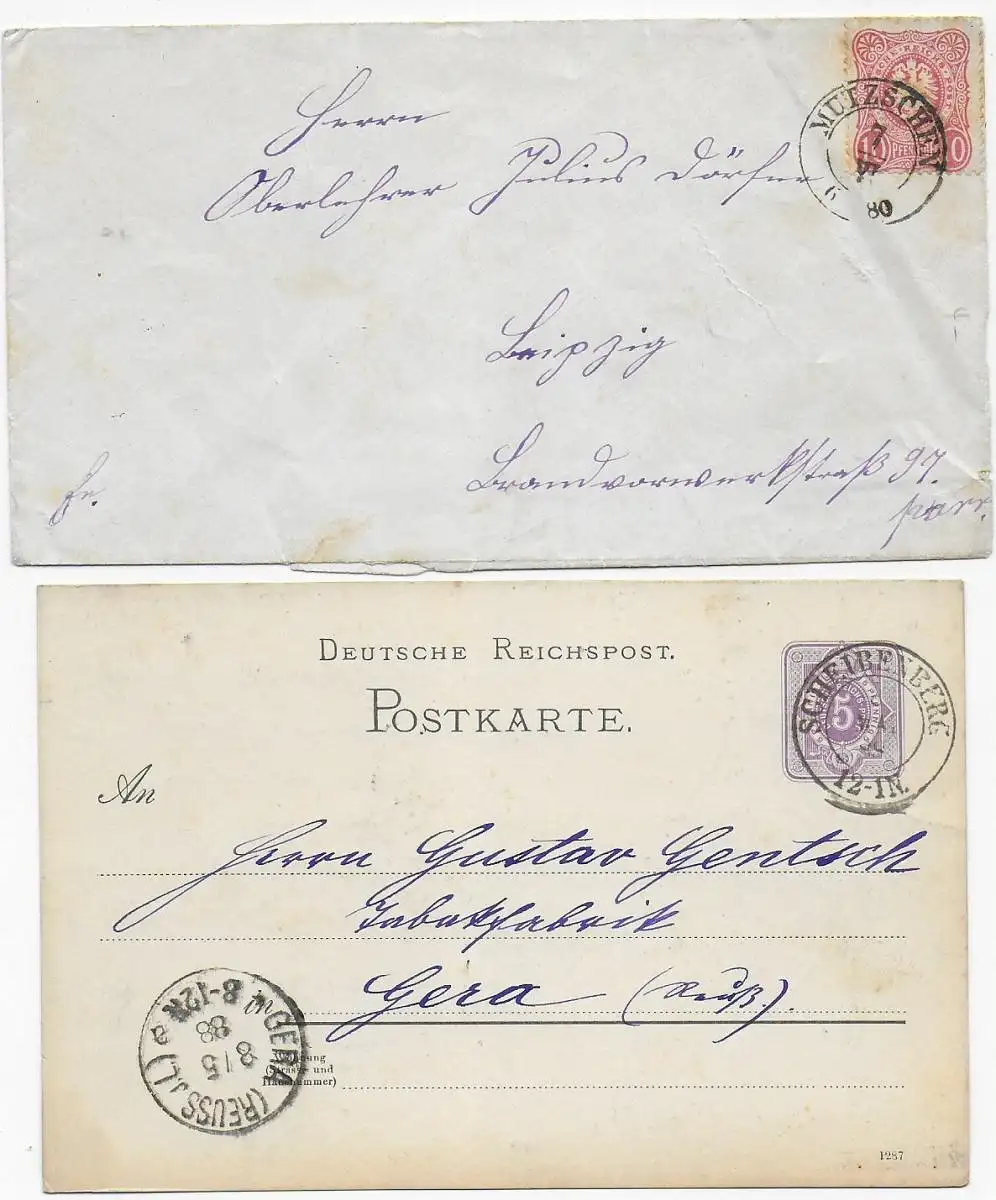 Herrn
Oberlehrer Julius Dörfer
Leipzig
Brandvorwerkstraß 97.
parr.
fr.
MUTZSCHEN
7
VI
80
10 PFENNIG 10
DEUTSCHE REICHSPOST.
POSTKARTE.
SCHEIBENBERG
12-1N.
5
An
Herrn Gustav Gentsch
Tabakfabrik
Gera (Reuß).
Wohnung
(Strasse und
Hausnummer)
GERA (REUSS J.L.) a
8 15
88
8-12N
1287